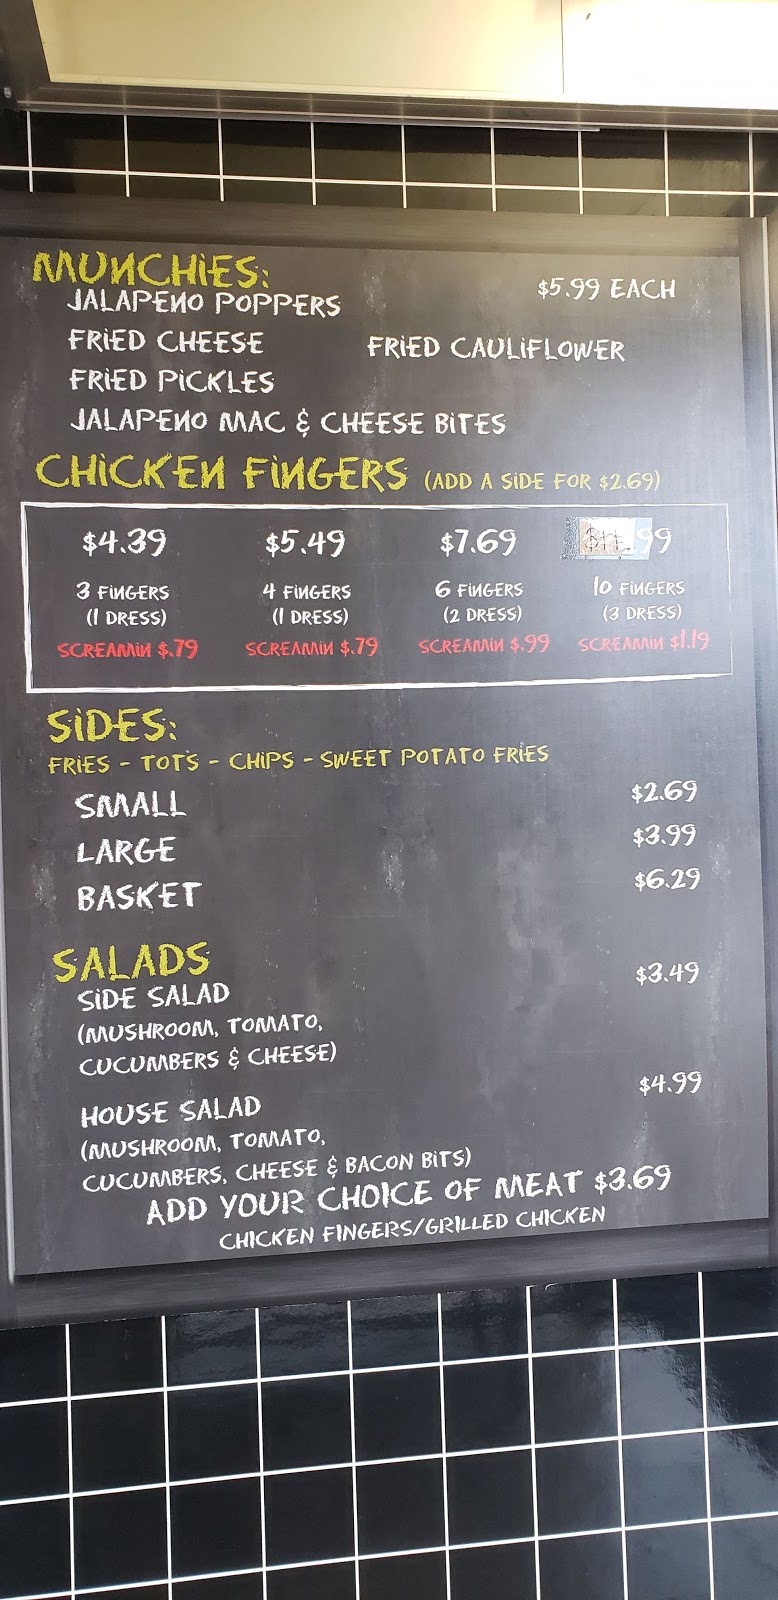 MUNCHIES:
$5.99 EACH
JALAPENO POPPERS
FRIED CHEESE
FRIED CAULIFLOWER
FRIED PICKLES
JALAPENO MAC & CHEESE BITES
CHICKEN FINGERS (ADD A SIDE FOR $2.69)
$4.39 $5.49 $7.69 .99
3 FINGERS 4 FINGERS 6 FINGERS 10 FINGERS
(1 DRESS) (1 DRESS) (2 DRESS) (3 DRESS)
SCREAMIN $.79 SCREAMIN $.79 SCREAMIN $.99 SCREAMIN $1.19
SIDES:
FRIES - TOTS - CHIPS - SWEET POTATO FRIES
SMALL $2.69
LARGE $3.99
BASKET $6.29
SALADS
SIDE SALAD $3.49
(MUSHROOM, TOMATO,
CUCUMBERS & CHEESE)
HOUSE SALAD $4.99
(MUSHROOM, TOMATO,
CUCUMBERS, CHEESE & BACON BITS)
ADD YOUR CHOICE OF MEAT $3.69
CHICKEN FINGERS/GRILLED CHICKEN